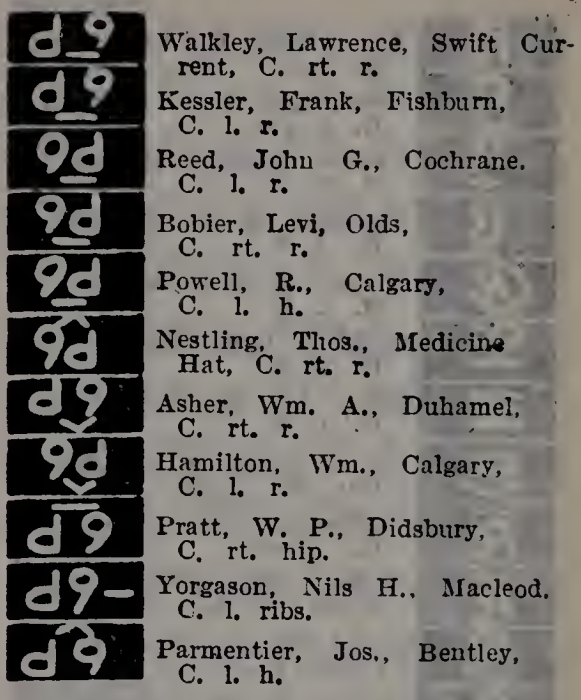 d_9 Walkley, Lawrence, Swift Cur-
rent, C. rt. r.
d_9 Kessler, Frank, Fishburn,
C. l. r.
9d Reed, John G., Cochrane.
C. l. r.
9d Bobier, Levi, Olds,
C. rt. r.
9d Powell, R., Calgary,
C. l. h.
9d Nestling, Thos., Medicine
Hat, C. rt. r.
d9 Asher, Wm. A., Duhamel,
C. rt. r.
9d Hamilton, Wm., Calgary,
C. l. r.
d9 Pratt, W. P., Didsbury,
C. rt. hip.
d9– Yorgason, Nils H., Macleod.
C. l. ribs.
d9 Parmentier, Jos., Bentley,
C. l. h.